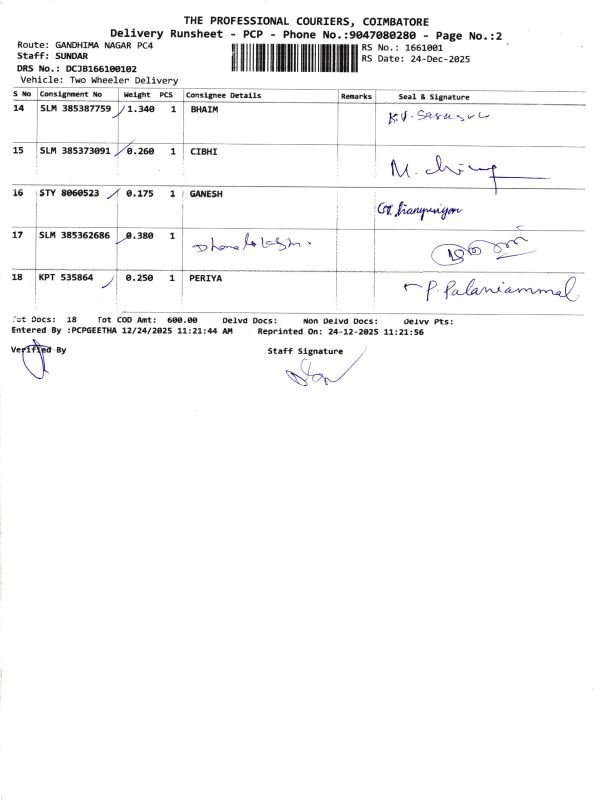 THE PROFESSIONAL COURIERS, COIMBATORE
Delivery Runsheet - PCP - Phone No.:9047080280 - Page No.:2
Route: GANDHIMA NAGAR PC4
RS No.: 1661001
Staff: SUNDAR
RS Date: 24-Dec-2025
DRS No.: DCJB166100102
Vehicle: Two Wheeler Delivery
S No Consignment No Weight PCS Consignee Details Remarks Seal & Signature
14 SLM 385387759 1.340 1 BHAIM K.V.
15 SLM 385373091 0.260 1 CIBHI M.
16 STY 8060523 0.175 1 GANESH
17 SLM 385362686 0.380 1
18 KPT 535864 0.250 1 PERIYA P. Palaniammal
Tot Docs: 18 Tot COD Amt: 600.00 Delvd Docs: Non Delvd Docs: Delvv Pts:
Entered By :PCPGEETHA 12/24/2025 11:21:44 AM Reprinted On: 24-12-2025 11:21:56
Verified By Staff Signature